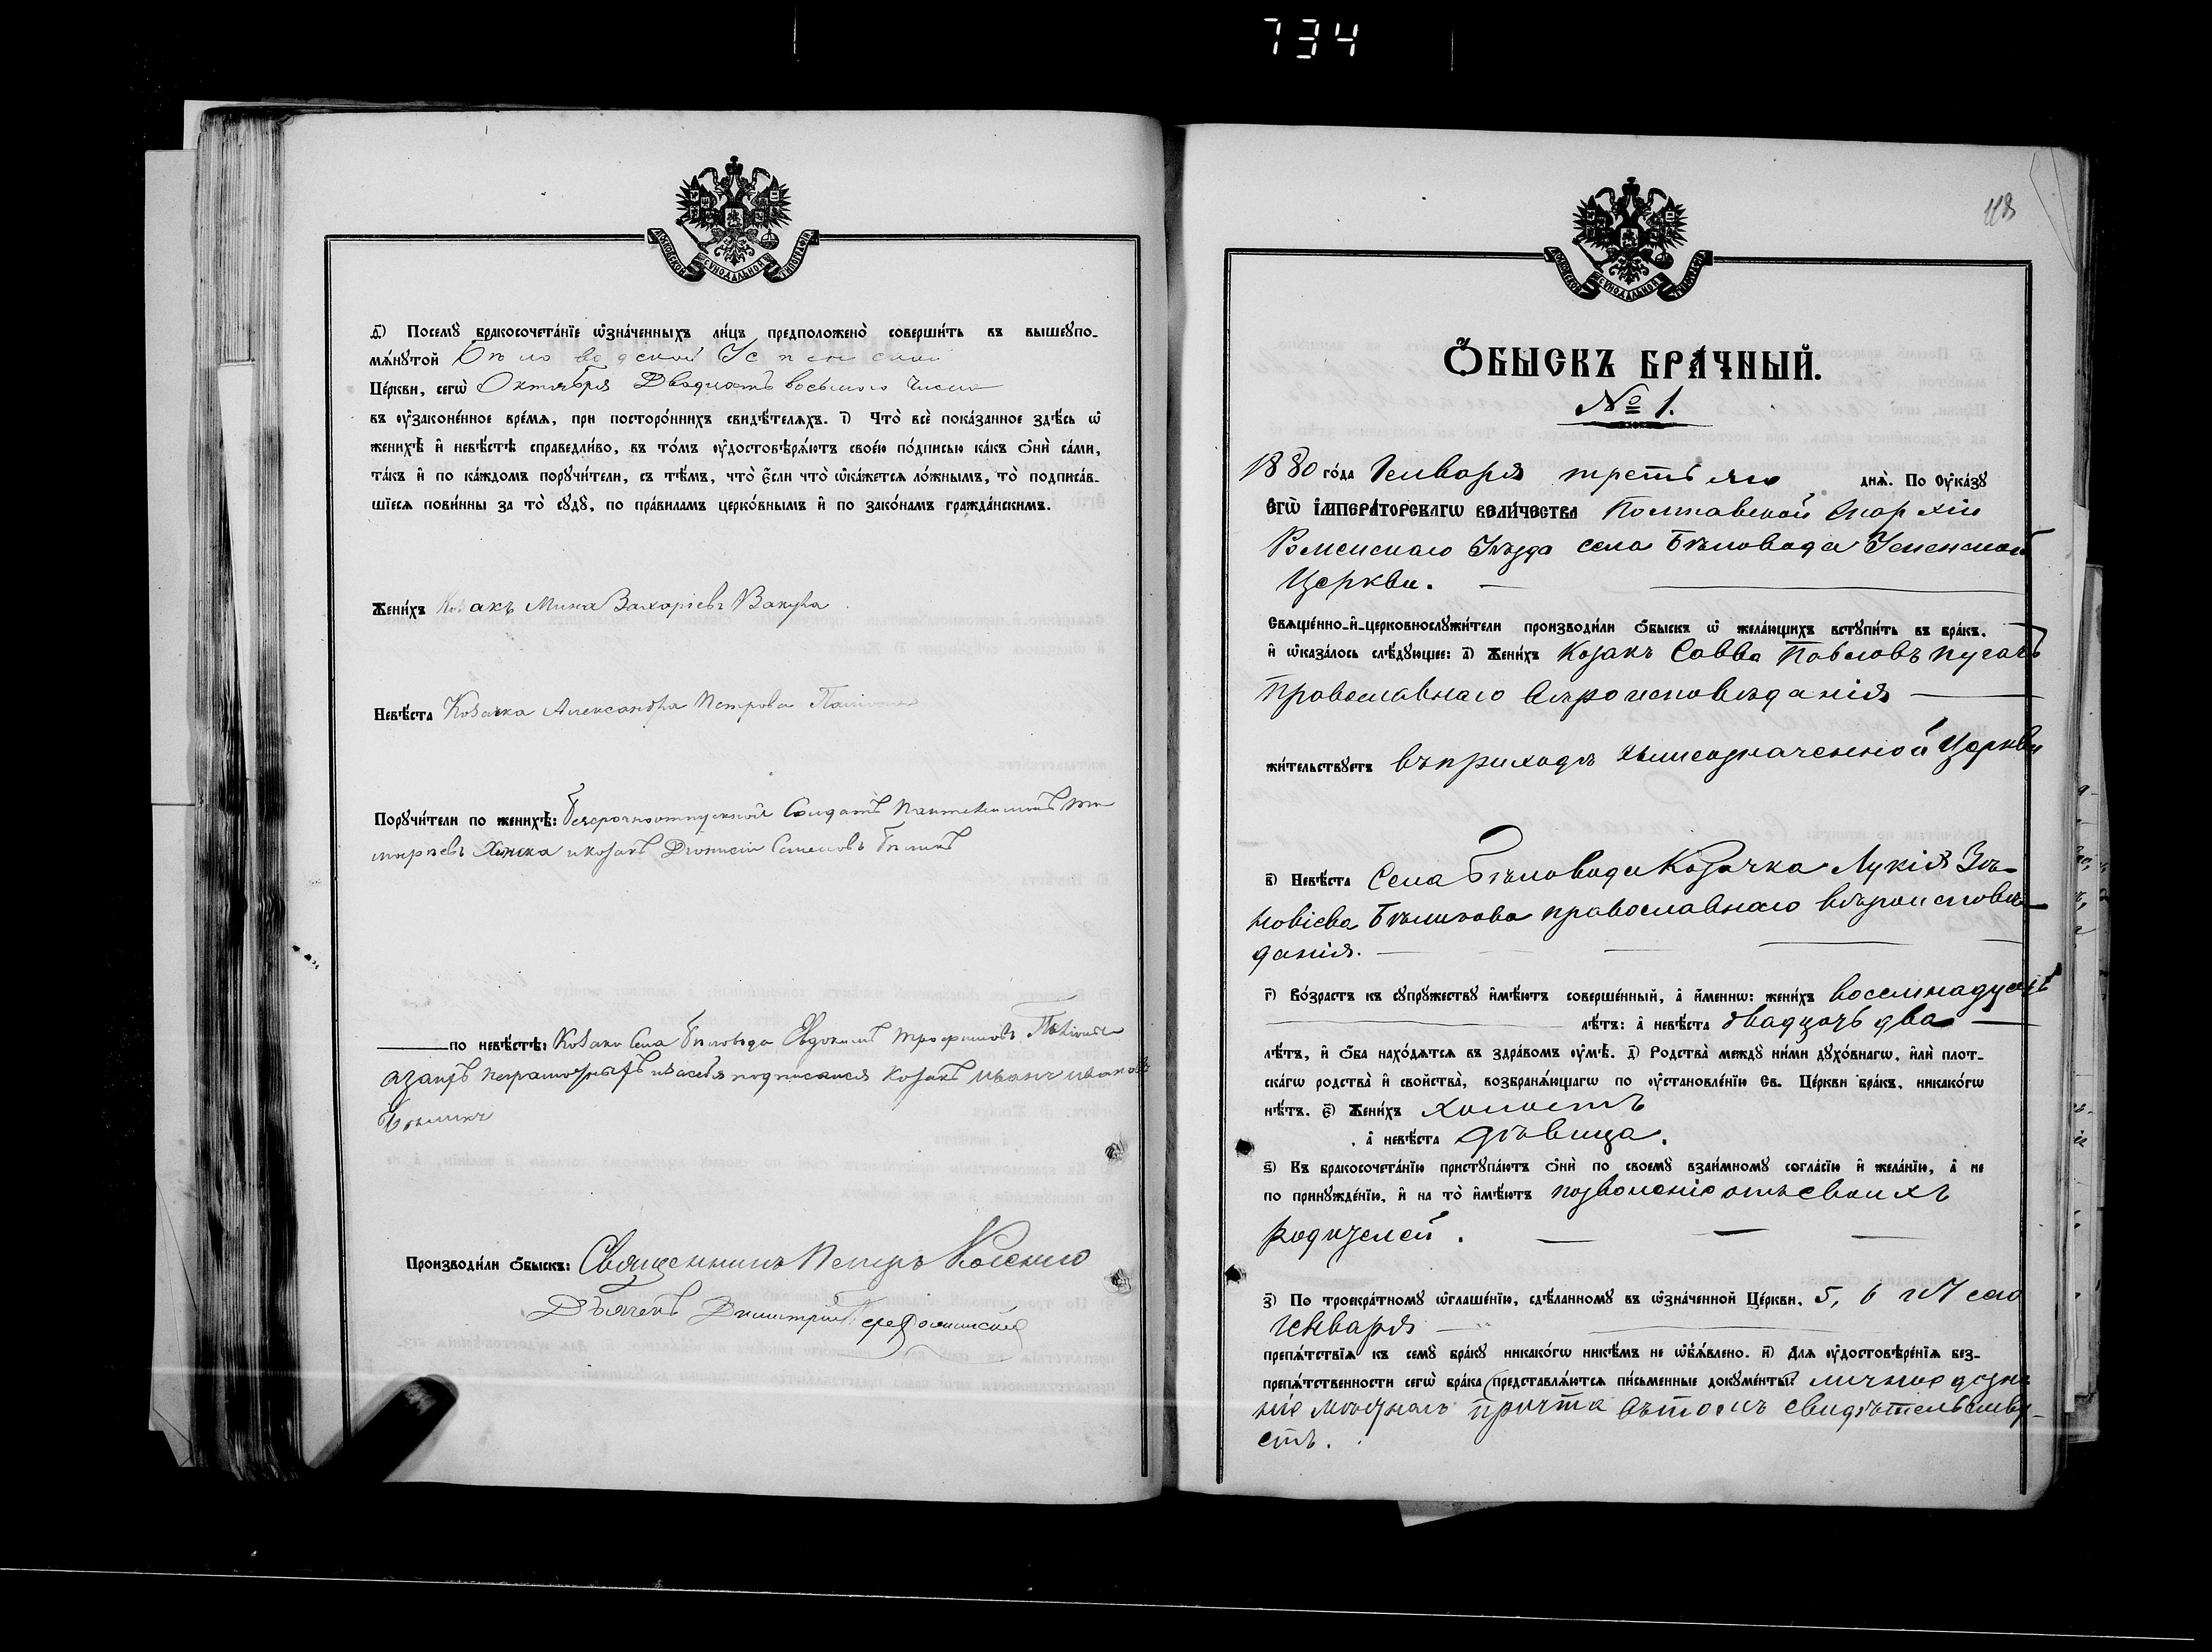 734
МОСКОВСКОЙ СѴНОДАЛЬНОЙ ТИПОГРАФІИ
д҃) Посемꙋ бракосочета́нїе ѡ҆зна́ченныхъ ли́цъ предположено̀ соверши́ть въ вышеꙋпо-
мѧ́нꙋтой Бѣловодской Успенской
Це́ркви, сегѡ̀ Октября Двадцать восьмого числа
въ ᲂу҆законе́нное вре́мѧ, при посторо́ннихъ свидѣ́телѧхъ. і҃) Что̀ всѐ пока́занное здѣ́сь ѡ҆
женихѣ̀ и҆ невѣ́стѣ справедли́во, въ то́мъ ᲂу҆достовѣрѧ́ютъ свое́ю по́дписью ка́къ ѻ҆нѝ са́ми,
та́къ и҆ по ка́ждомъ порꙋчи́тели, съ тѣ́мъ, что̀ є҆́сли что̀ ѡ҆ка́жетсѧ ло́жнымъ, то̀ подписа́в-
шїесѧ пови́нны за то̀ сꙋдꙋ̀, по пра́виламъ церко́внымъ и҆ по зако́намъ гражда́нскимъ.
Жени́хъ Козакъ Мина Захаріевъ Вакула
Невѣ́ста Козачка Александра Петрова
Порꙋчи́тели по женихѣ̀: Безсрочноотпускной Солдатъ Пантелимонъ
и козакъ Діонисій Семеновъ Бѣликъ
по невѣ́стѣ: Козаки Села Бѣловода Евдокимъ Трофимовъ
а за нихъ неграмотныхъ и за себя подписался козакъ Иванъ Ивановъ
Бѣликъ
Производи́ли ѻ҆́быскъ: Священникъ Петръ
Дьячекъ Димитрій
118
МОСКОВСКОЙ СѴНОДАЛЬНОЙ ТИПОГРАФІИ
Ѻ҆́БЫСКЪ БРА́ЧНЫЙ.
№ 1.
1880 го́да Генваря третьяго днѧ̀. По ᲂу҆ка́зꙋ
Є҆гѡ̀ І҆мпера́торскагѡ вели́чества Полтавской Епархіи
Роменскаго Уѣзда села Бѣловода Успенской
Церкви.
Свѧще́нно-и҆-церковнослꙋжи́тели производи́ли ѻ҆́быскъ ѡ҆ жела́ющихъ встꙋпи́ть въ бра́къ,
и҆ ѡ҆каза́лось слѣ́дꙋющее: а҃) Жени́хъ Козакъ Савва Павловъ Пугачъ
Православнаго Вѣроисповѣданія
жи́тельствꙋетъ въ приходѣ вышеозначенной Церкви
в҃) Невѣ́ста Села Бѣловода Козачка Лукія Зѣ-
новіева Бѣликова православнаго вѣроисповѣ-
данія.
г҃) Во́зрастъ къ сꙋпрꙋ́жествꙋ и҆мѣ́ютъ соверше́нный, а҆ и҆́менно: жени́хъ восемнадцать
лѣ́тъ: а҆ невѣ́ста двадцать два
лѣ́тъ, и҆ ѻ҆́ба нахо́дѧтсѧ въ здра́вомъ ᲂу҆мѣ̀. д҃) Родства̀ междꙋ̀ ни́ми дꙋхо́внагѡ, и҆лѝ плот-
ска́гѡ родства̀ и҆ сво́йства̀, возбранѧ́ющагѡ по ᲂу҆становле́нїю Св. Це́ркви бра́къ, никако́гѡ
нѣ́тъ. є҃) Жени́хъ холостъ
, а҆ невѣ́ста дѣвица.
ѕ҃) Къ бракосочета́нїю пристꙋпа́ютъ ѻ҆нѝ по своемꙋ̀ взаи́мномꙋ согла́сїю и҆ жела́нїю, а҆ не
по принꙋжде́нїю, и҆ на то̀ и҆мѣ́ютъ позволеніе отъ своихъ
родителей.
з҃) По троекра́тномꙋ ѡ҆глаше́нїю, сдѣ́ланномꙋ въ ѡ҆зна́ченной Це́ркви, 5, 6 и 7 сего
Генваря
препѧ́тствїѧ къ семꙋ̀ бра́кꙋ никако́гѡ никѣ́мъ не ѡ҆б̾ѧ́влено. и҃) Длѧ ᲂу҆достовѣре́нїѧ без-
препѧ́тственности сегѡ̀ бра́ка (представлѧ́ютсѧ пи́сьменные докꙋме́нты: личное дозна
ніе мѣстнаго причта въ томъ свидѣтельству-
етъ.